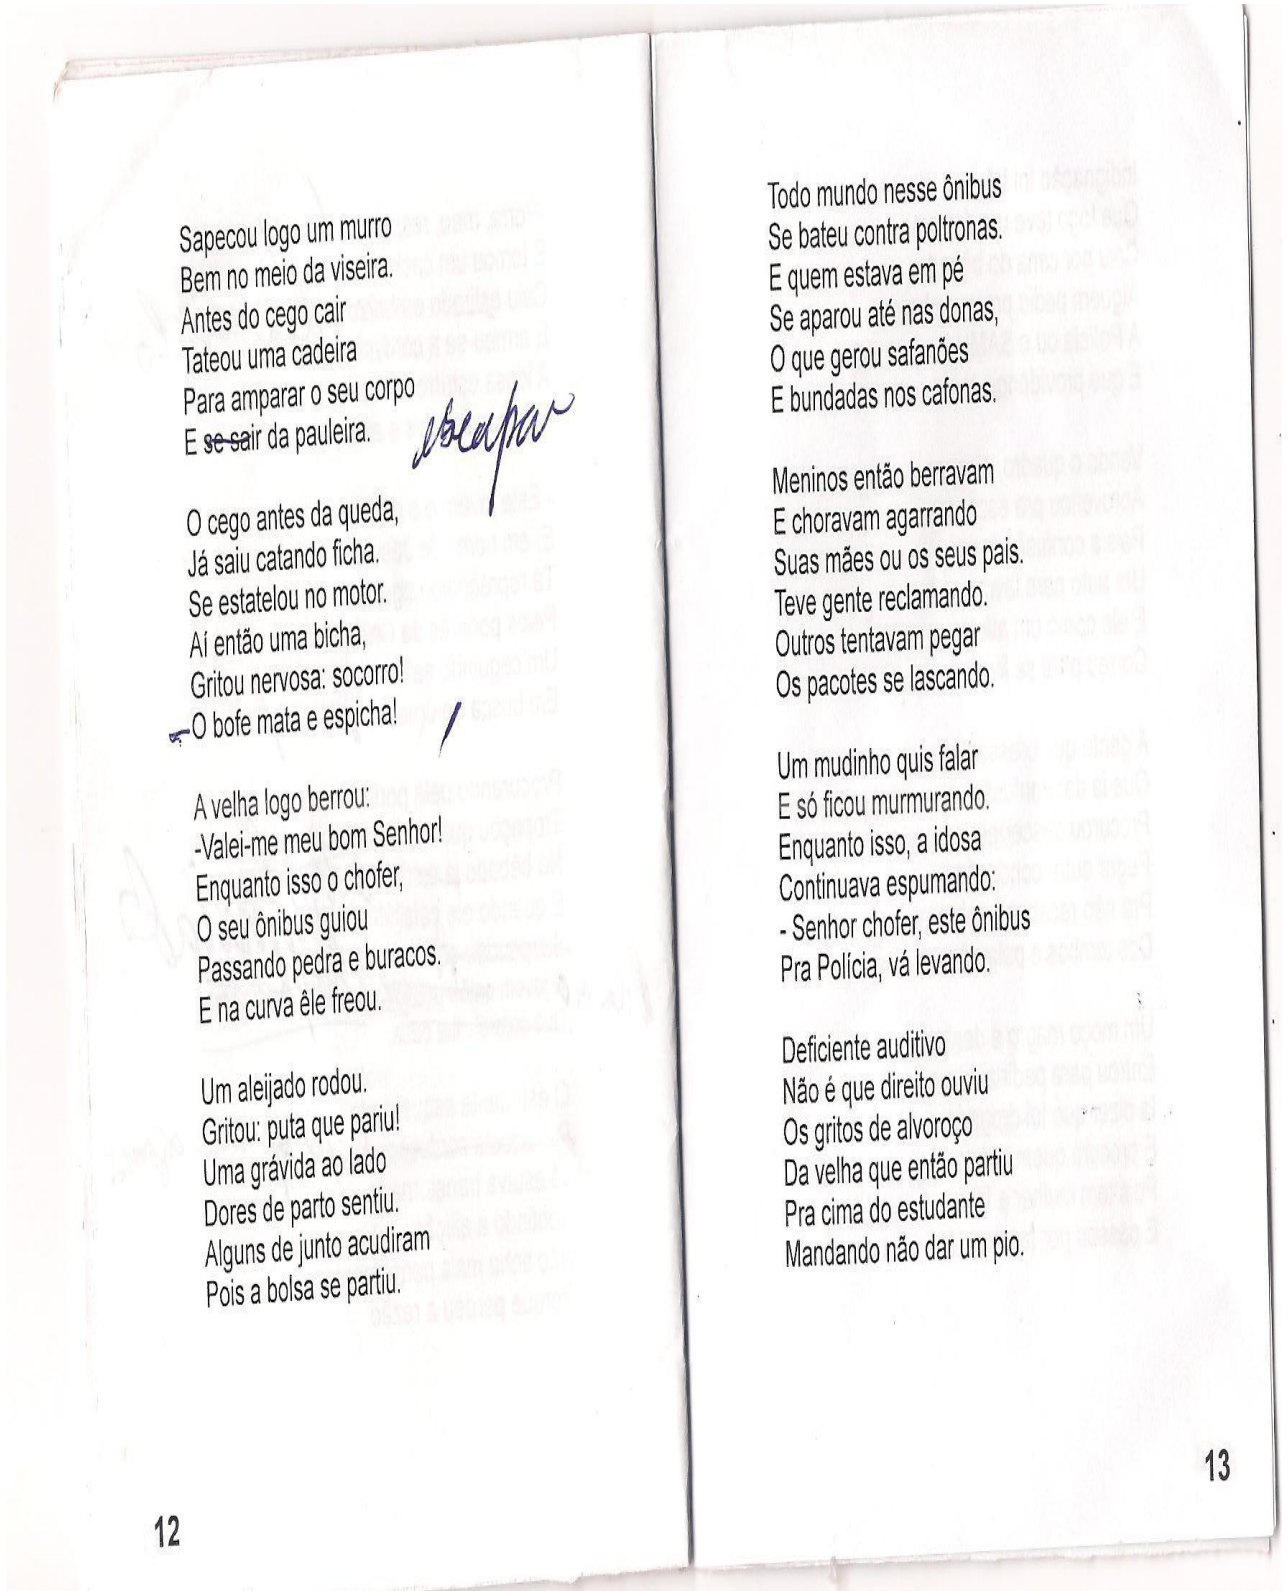 Sapecou logo um murro
Bem no meio da viseira.
Antes do cego cair
Tateou uma cadeira
Para amparar o seu corpo
E se sair da pauleira.
escapar
O cego antes da queda,
Já saiu catando ficha.
Se estatelou no motor.
Aí então uma bicha,
Gritou nervosa: socorro!
-O bofe mata e espicha!
A velha logo berrou:
-Valei-me meu bom Senhor!
Enquanto isso o chofer,
O seu ônibus guiou
Passando pedra e buracos.
E na curva êle freou.
Um aleijado rodou.
Gritou: puta que pariu!
Uma grávida ao lado
Dores de parto sentiu.
Alguns de junto acudiram
Pois a bolsa se partiu.
12
Todo mundo nesse ônibus
Se bateu contra poltronas.
E quem estava em pé
Se aparou até nas donas,
O que gerou safanões
E bundadas nos cafonas.
Meninos então berravam
E choravam agarrando
Suas mães ou os seus pais.
Teve gente reclamando.
Outros tentavam pegar
Os pacotes se lascando.
Um mudinho quis falar
E só ficou murmurando.
Enquanto isso, a idosa
Continuava espumando:
- Senhor chofer, este ônibus
Pra Polícia, vá levando.
Deficiente auditivo
Não é que direito ouviu
Os gritos de alvoroço
Da velha que então partiu
Pra cima do estudante
Mandando não dar um pio.
13